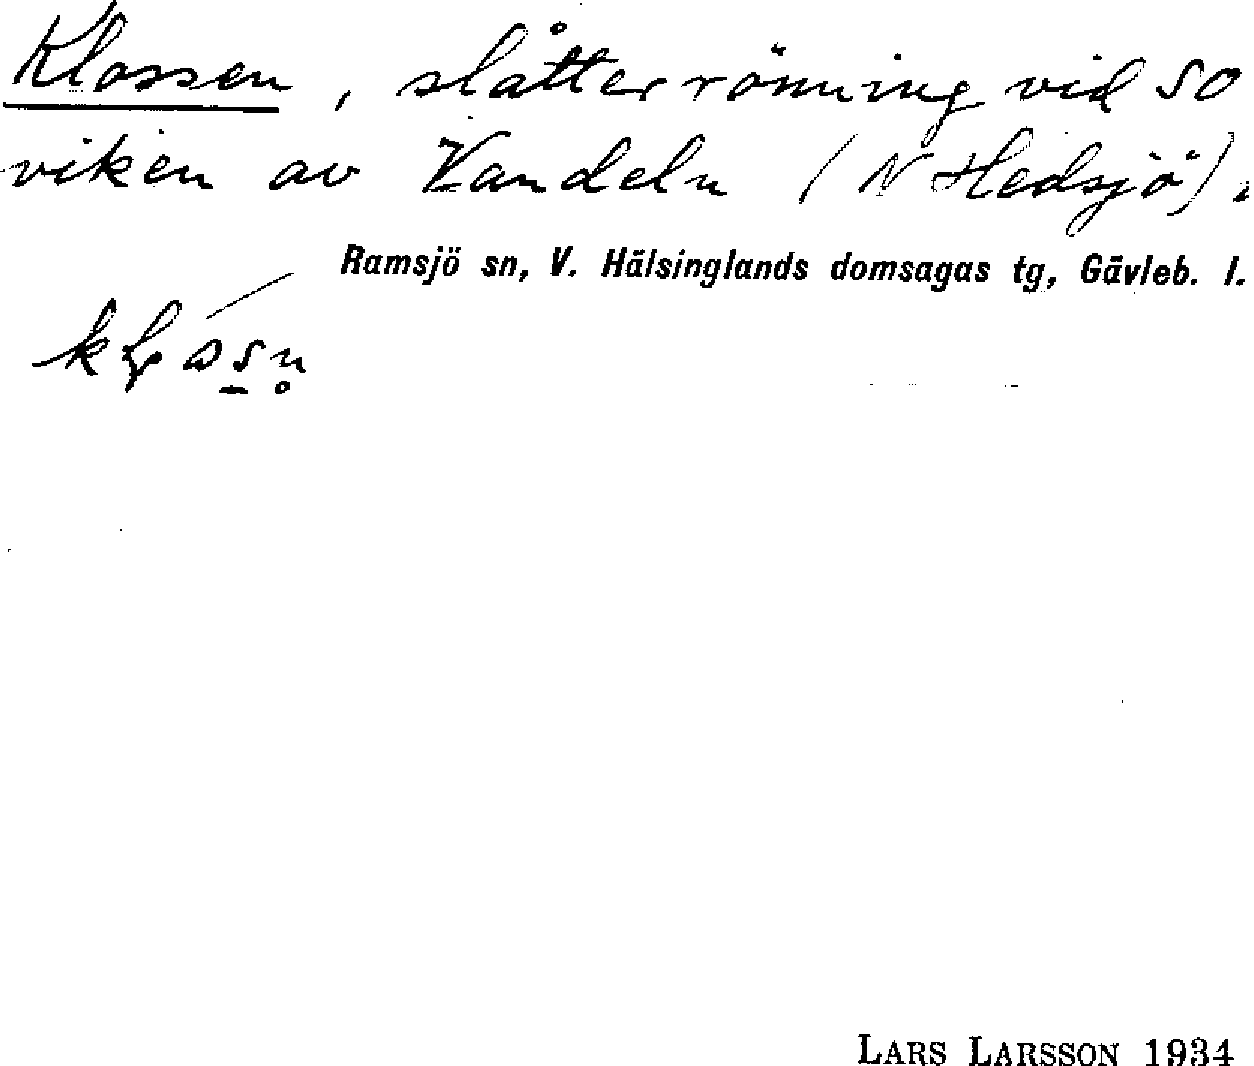 Klossen, slåtterrönning vid SO
viken av Vandeln (N Hedsjö).
Ramsjö sn, V. Hälsinglands domsagas tg, Gävleb. l.
LARS LARSSON 1934